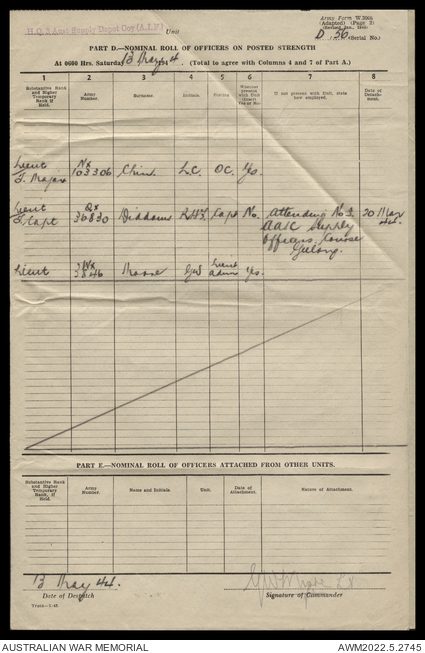 Army Form W 3008
(Adapted) (Page 2)
(Revised Jan., 1943)
H.Q. 3 Aust Supply Depot Coy (A.I.F.) Unit
D 56 (Serial No.)
PART D.—NOMINAL ROLL OF OFFICERS ON POSTED STRENGTH
At 0600 Hrs. Saturday 13 May 44. (Total to agree with Columns 4 and 7 of Part A.)
1 2 3 4 5 6 7 8
Substantive Rank and Higher Temporary Rank if Held. Army Number. Surname. Initials. Posting Whether present with Unit (insert Yes or No) If not present with Unit, state how employed. Date of Detachment.
Lieut NX
T. Major 103306 L.C. OC. Yes.
Lieut QX
T/Capt 30830 Diddams Capt No. Attending No 3. 20 Mar
AASC Supply 44.
Officers Course
Geelong.
Lieut Moore GW Lieut Yes.
Admin
PART E.—NOMINAL ROLL OF OFFICERS ATTACHED FROM OTHER UNITS.
Substantive Rank and Higher Temporary Rank, if Held. Army Number. Name and Initials. Unit. Date of Attachment. Nature of Attachment.
13 May 44. GW Moore Lt
Date of Despatch Signature of Commander
AUSTRALIAN WAR MEMORIAL AWM2022.5.2745